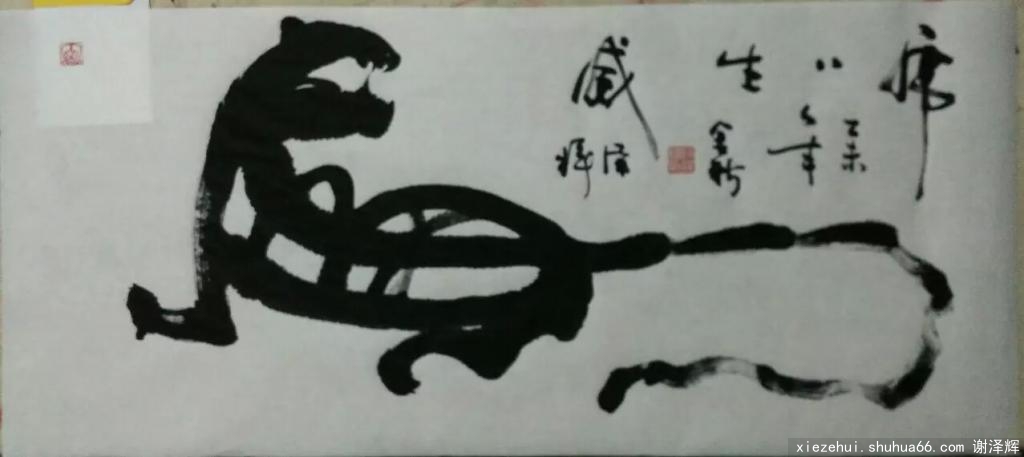 虎〃生威
乙未
年
金秋
泽辉
xiezehui.shuhua66.com 谢泽辉